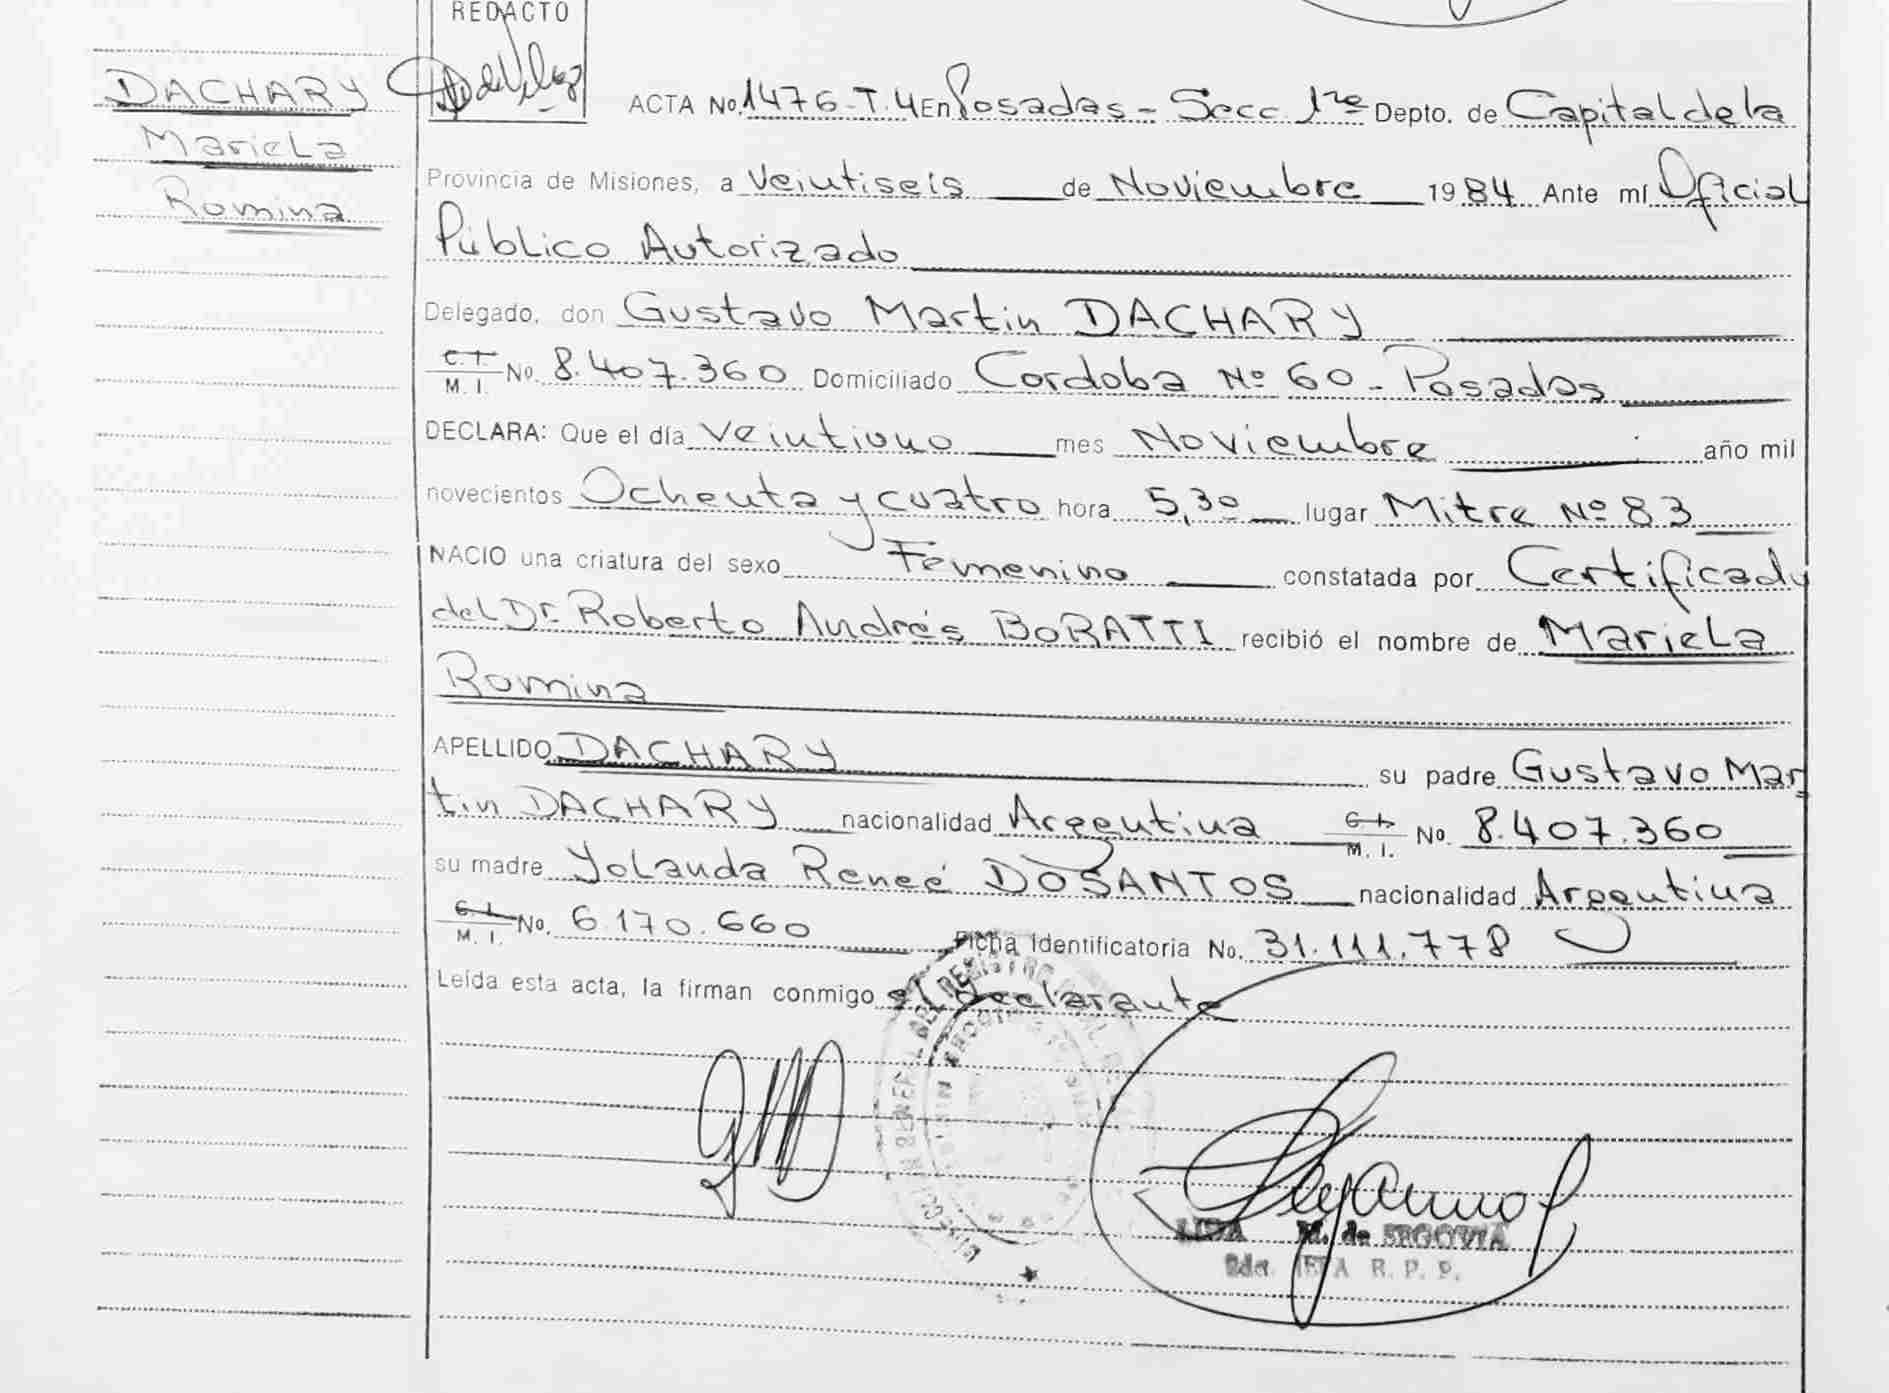 REDACTO
DACHARY
Mariela
Romina
ACTA No. 1476-T.4 En Posadas - Secc. 1ra Depto. de Capital de la
Provincia de Misiones, a Veintiseis de Noviembre 1984 Ante mí Oficial
Público Autorizado
Delegado, don Gustavo Martin DACHARY
C.I. M. I. No. 8.407.360 Domiciliado Cordoba Nº 60 - Posadas
DECLARA: Que el día Veintiuno mes Noviembre año mil
novecientos Ochenta y cuatro hora 5,30 lugar Mitre Nº 83
NACIO una criatura del sexo Femenino constatada por Certificado
del Dr. Roberto Andrés BORATTI recibió el nombre de Mariela
Romina
APELLIDO DACHARY su padre Gustavo Mar
tin DACHARY nacionalidad Argentina C.I. M. I. No. 8.407.360
su madre Yolanda Reneé DOSANTOS nacionalidad Argentina
C.I. M. I. No. 6.170.660 Ficha Identificatoria No. 31.111.778
Leída esta acta, la firman conmigo el declarante
LIDA M. de SEGOVIA
R. P. P.